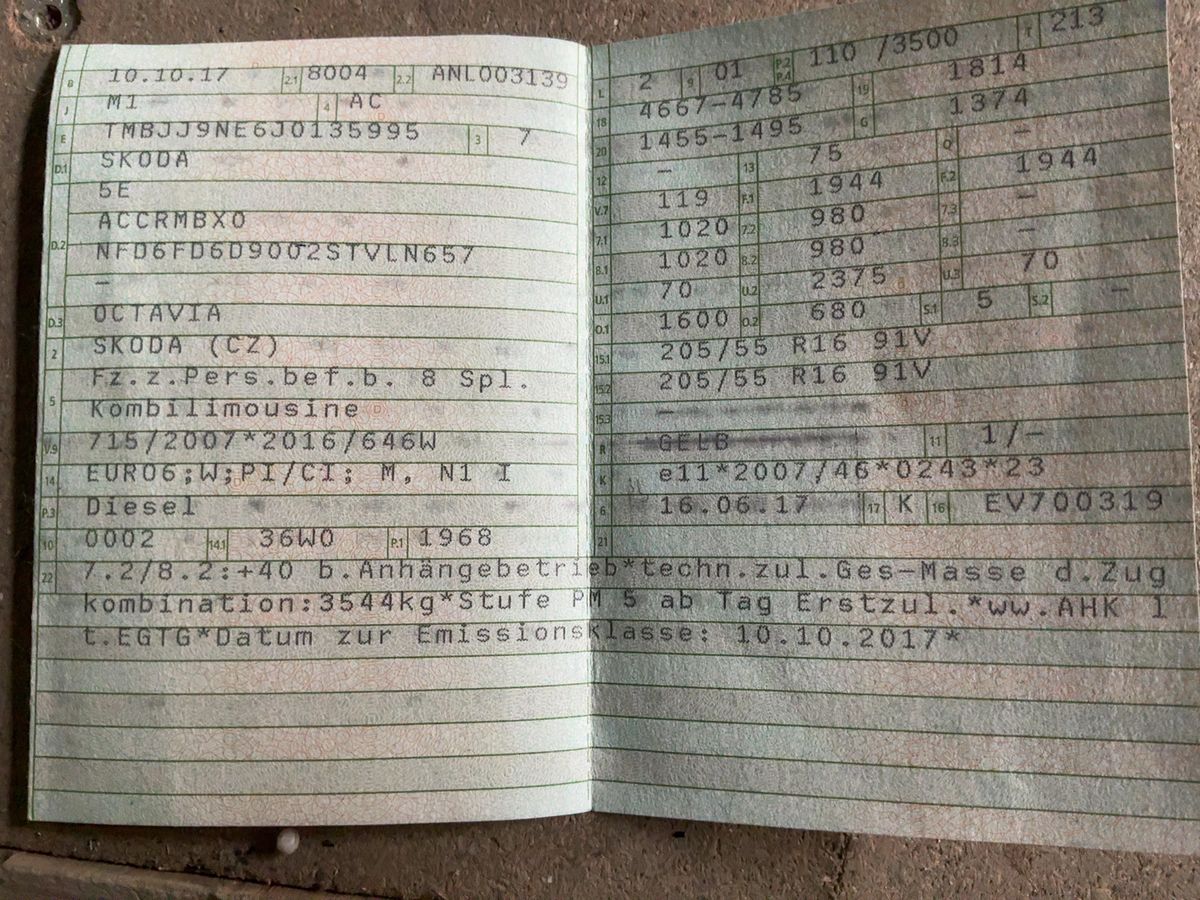 B 10.10.17 2.1 8004 2.2 ANL003139
J M1 4 AC
E TMBJJ9NE6J0135995 3 7
D.1 SKODA
5E
ACCRMBX0
D.2 NFD6FD6D9002STVLN657
–
D.3 OCTAVIA
2 SKODA (CZ)
5 Fz.z.Pers.bef.b. 8 Spl.
Kombilimousine
V.9 715/2007*2016/646W
14 EURO6;W;PI/CI; M, N1 I
P.3 Diesel
10 0002 14.1 36W0 P.1 1968
L 2 9 01 P.2 P.4 110 /3500 T 213
18 4667-4785 19 1814
20 1455-1495 G 1374
12 – 13 75 Q –
V.7 119 F.1 1944 F.2 1944
7.1 1020 7.2 980 7.3 –
8.1 1020 8.2 980 8.3 –
U.1 70 U.2 2375 U.3 70
O.1 1600 O.2 680 S.1 5 S.2 –
15.1 205/55 R16 91V
15.2 205/55 R16 91V
15.3 –
R GELB 11 1/-
K e11*2007/46*0243*23
6 16.06.17 17 K 16 EV700319
21
22 7.2/8.2:+40 b.Anhängebetrieb*techn.zul.Ges-Masse d.Zug
kombination:3544kg*Stufe PM 5 ab Tag Erstzul.*ww.AHK l
t.EGTG*Datum zur Emissionsklasse: 10.10.2017*